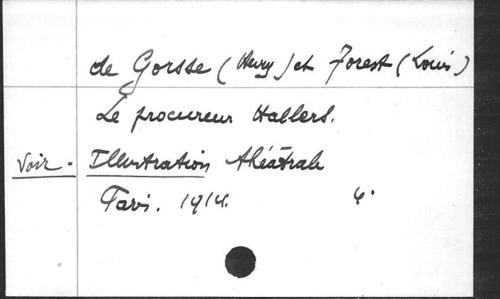 de Gorsse (Henry) et Forest (Louis)
Le procureur Hallers.
Voir. Illustration théâtrale
Paris. 1914. 4°